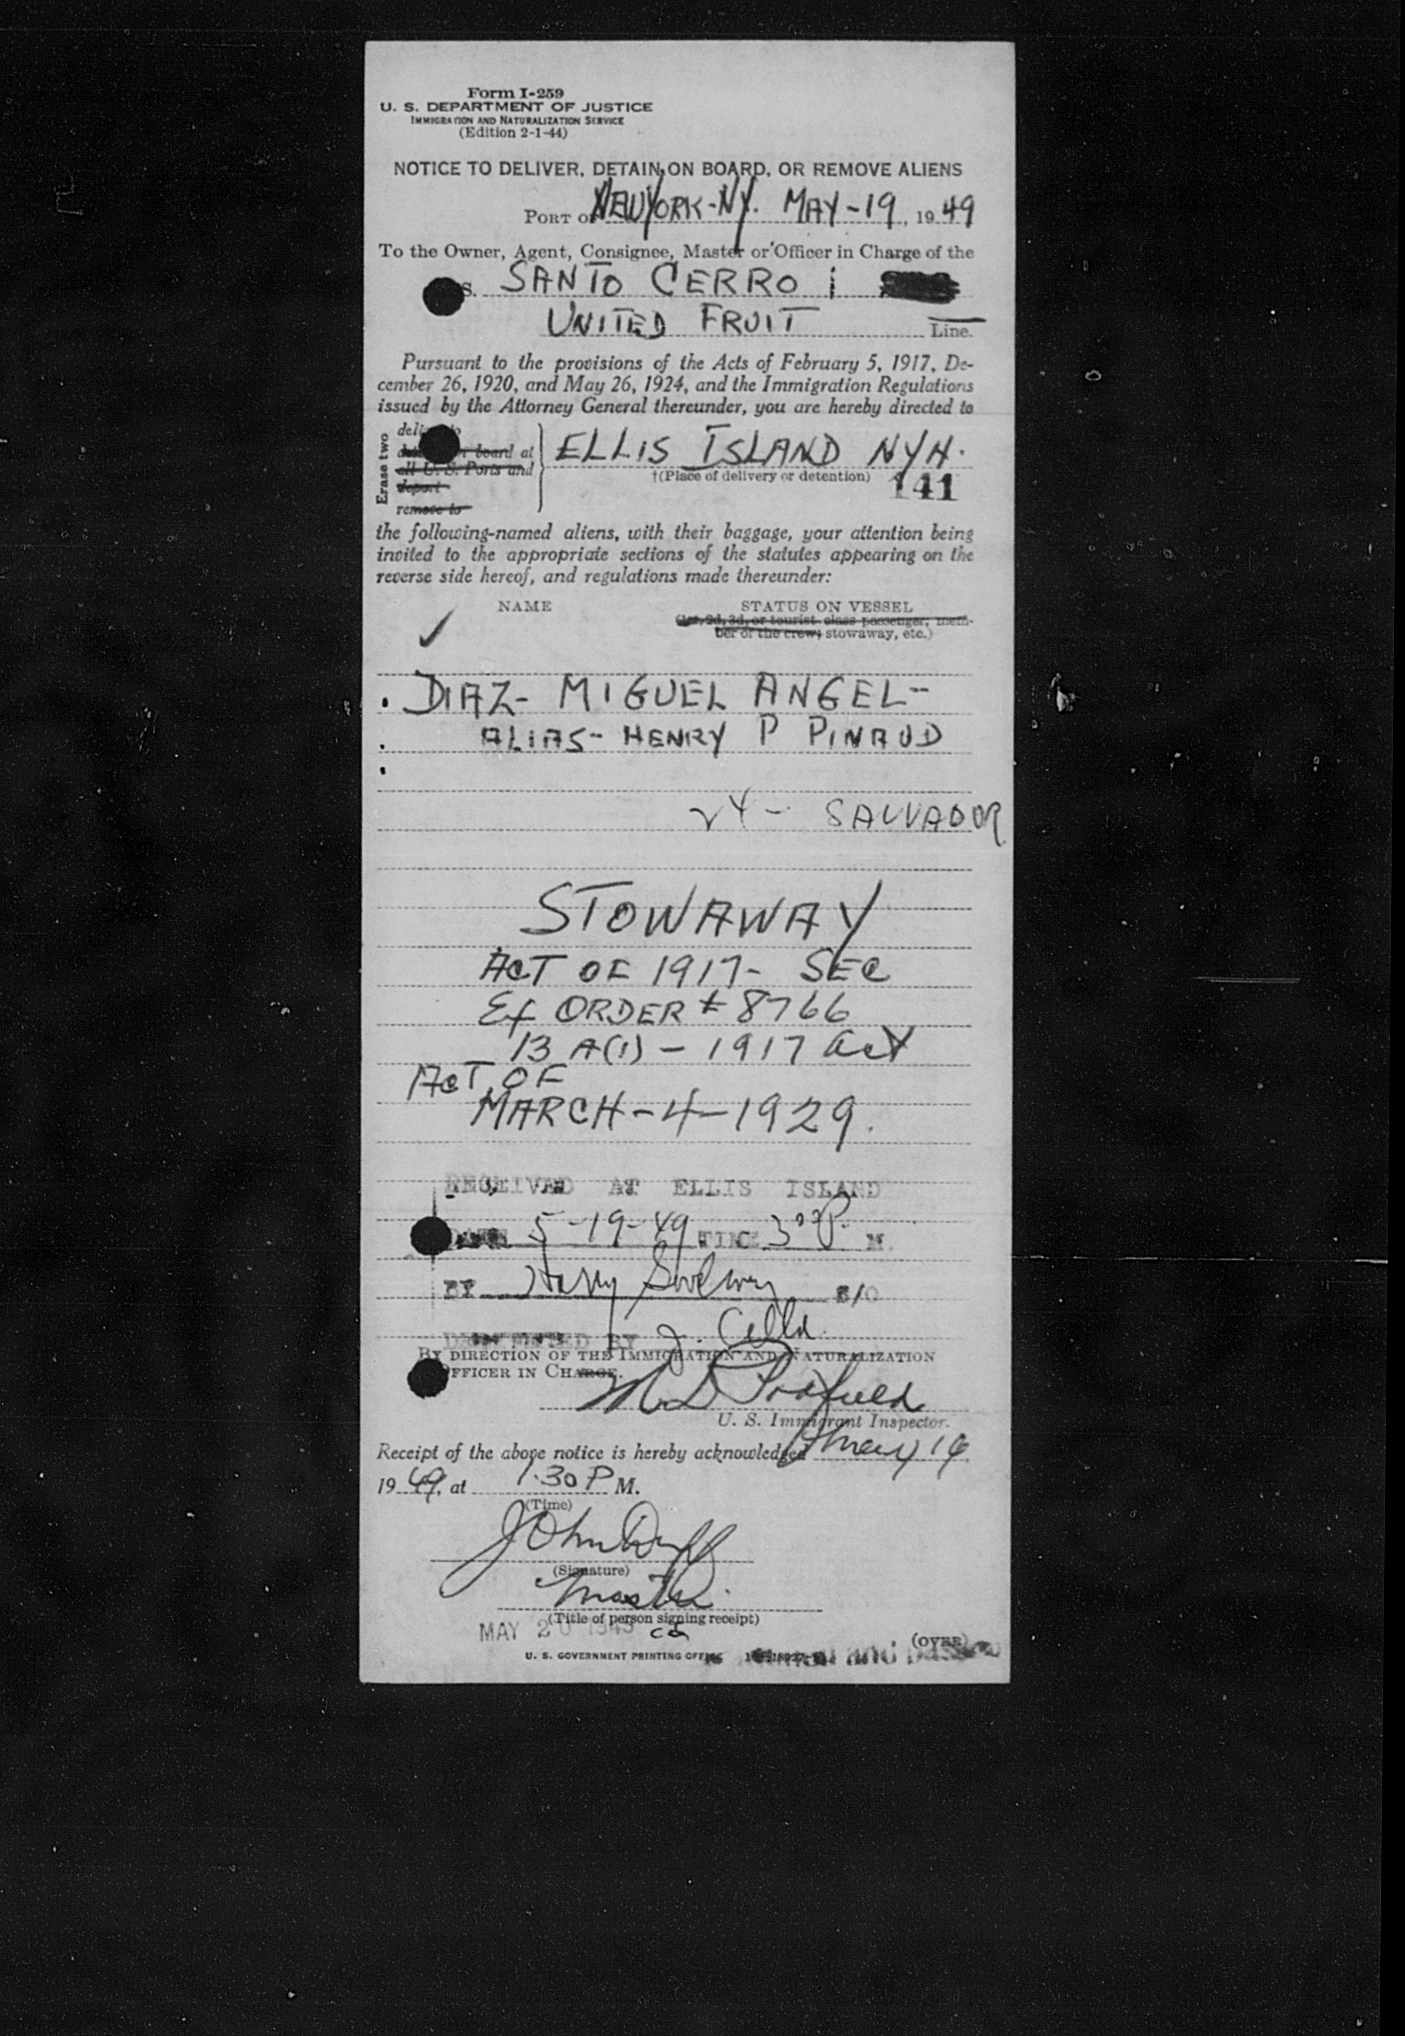 Form I-259
U. S. DEPARTMENT OF JUSTICE
IMMIGRATION AND NATURALIZATION SERVICE
(Edition 2-1-44)
NOTICE TO DELIVER, DETAIN ON BOARD, OR REMOVE ALIENS
PORT OF NEW YORK-NY. MAY-19, 1949
To the Owner, Agent, Consignee, Master or Officer in Charge of the
S. SANTO CERRO
UNITED FRUIT Line.
Pursuant to the provisions of the Acts of February 5, 1917, De-
cember 26, 1920, and May 26, 1924, and the Immigration Regulations
issued by the Attorney General thereunder, you are hereby directed to
Erase two
deliver to
board at
all U. S. Ports and
deport
remove to
ELLIS ISLAND NYH.
†(Place of delivery or detention) 141
the following-named aliens, with their baggage, your attention being
invited to the appropriate sections of the statutes appearing on the
reverse side hereof, and regulations made thereunder:
NAME STATUS ON VESSEL
(1st, 2d, 3d, or tourist class passenger, mem-
ber of the crew, stowaway, etc.)
DIAZ- MIGUEL ANGEL-
ALIAS- HENRY P PINAUD
24- SALVADOR
STOWAWAY
ACT OF 1917- SEC
Ex ORDER # 8766
13 A(1) - 1917 act
ACT OF
MARCH-4-1929.
RECEIVED AT ELLIS ISLAND
DATE 5-19-49 TIME 3 00 P. M.
BY Harry
BY J. Cella
BY DIRECTION OF THE IMMIGRATION AND NATURALIZATION
OFFICER IN CHARGE.
U. S. Immigrant Inspector.
Receipt of the above notice is hereby acknowledged May 19
1949, at 1.30 P M.
(Time)
John Duff
(Signature)
Master
(Title of person signing receipt)
MAY 20 1949
(OVER)
U. S. GOVERNMENT PRINTING OFFICE